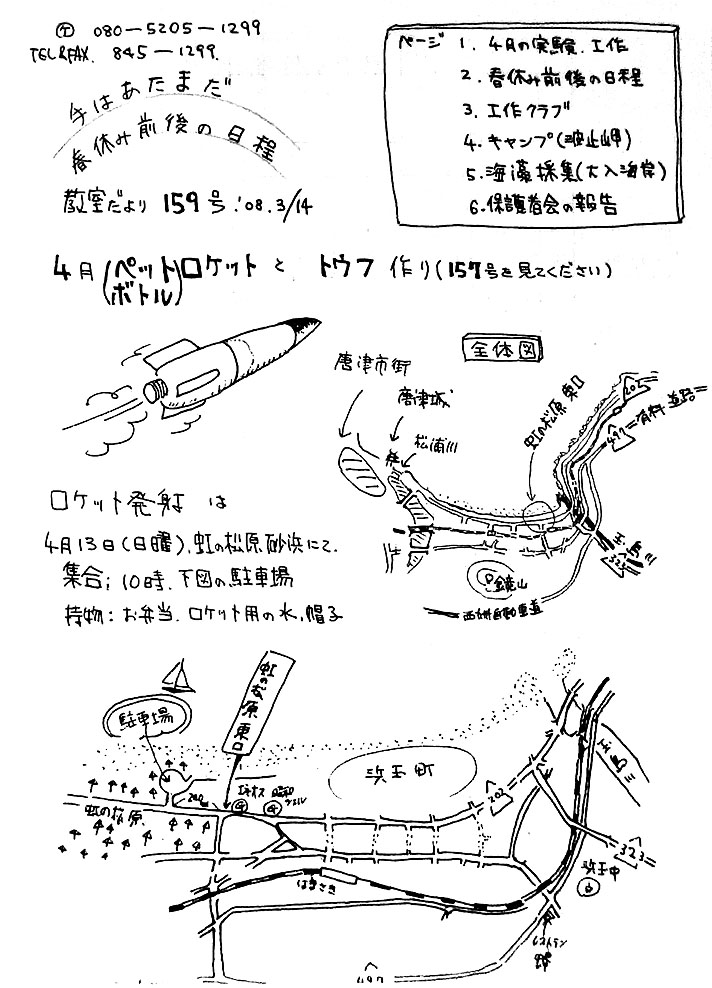 ケ 080-5205-1299
TEL&FAX. 845-1299.
今はあたまだ
春休み前後の日程
教室だより 159号 '08.3/14
ページ 1. 4月の実験.工作
2. 春休み前後の日程
3. 工作クラブ
4. キャンプ(波止岬)
5. 海藻採集(大入海岸)
6. 保護者会の報告
4月(ペットボトル)ロケットと トウフ作り(157号を見てください)
全体図
唐津市街
唐津城
松浦川
虹の松原東口
202
497=有料道路=
玉島川
323
鏡山
西九州自動車道
ロケット発射は
4月13日(日曜).虹の松原砂浜にて.
集合; 10時.下図の駐車場
持物: お弁当.ロケット用の水,帽子
虹の松原東口
駐車場
浜玉町
玉島川
虹の松原
200m
エネオス
昭和シェル
202
323
浜玉中
はまさき
レストラン
497